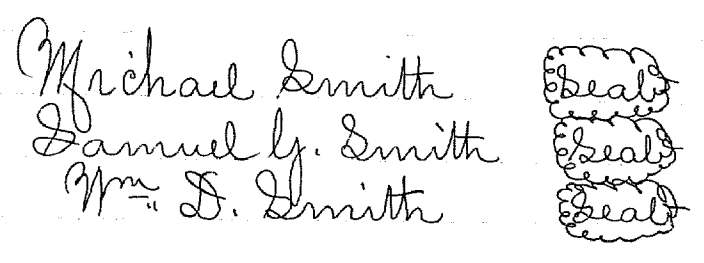 Michael Smith Seal
Samuel G. Smith Seal
Wm D. Smith Seal